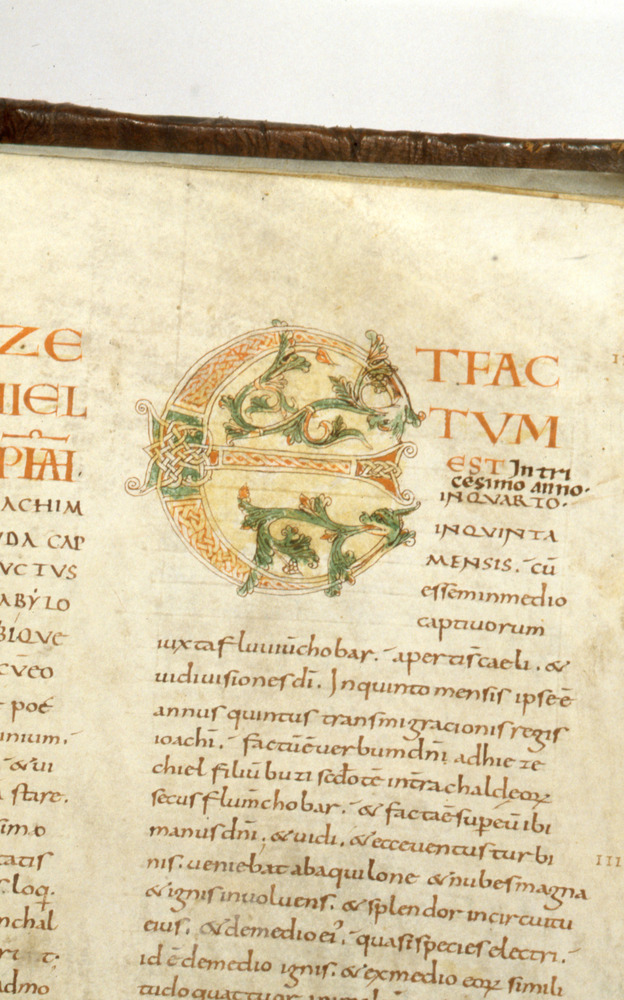 ZE
NIEL
PHAI.
ACHIM
UDA CAP
VCTVS
ABYLO
BIQVE
CVEO
poe
inium.
& ui
stare.
simo
tatis
loq.
nchal
admo
ET FAC
TVM
EST In tri
cesimo anno.
IN QVARTO.
IN QVINTA
MENSIS. cū
essem in medio
captiuorum
iuxta fluuiū chobar. aperti s̄ caeli. &
uidi uisiones dī. In quinto mensis ipse ē
annus quintus transmigracionis regis
ioachī. factū ē uerbum dn̄i ad hieze
chiel filiū buzi sacdotē in trā chaldeorꝝ
secus flum̄ chobar. & facta ē sup eū ibi
manus dn̄i. & uidi. & ecce uentus turbi
nis. ueniebat ab aquilone & nubes magna
& ignis inuoluens. & splendor in circuitu
eius. & de medio ei'. quasi species electri.
id ē de medio ignis. & ex medio eorꝝ simili
tudo quattuor
III